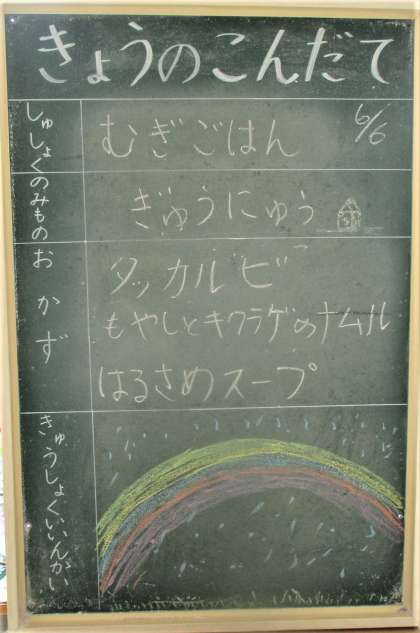 きょうのこんだて
6/6
しゅしょく
むぎごはん
のみもの
ぎゅうにゅう
おかず
タッカルビ
もやしとキクラゲのナムル
はるさめスープ
きゅうしょくいいんかい